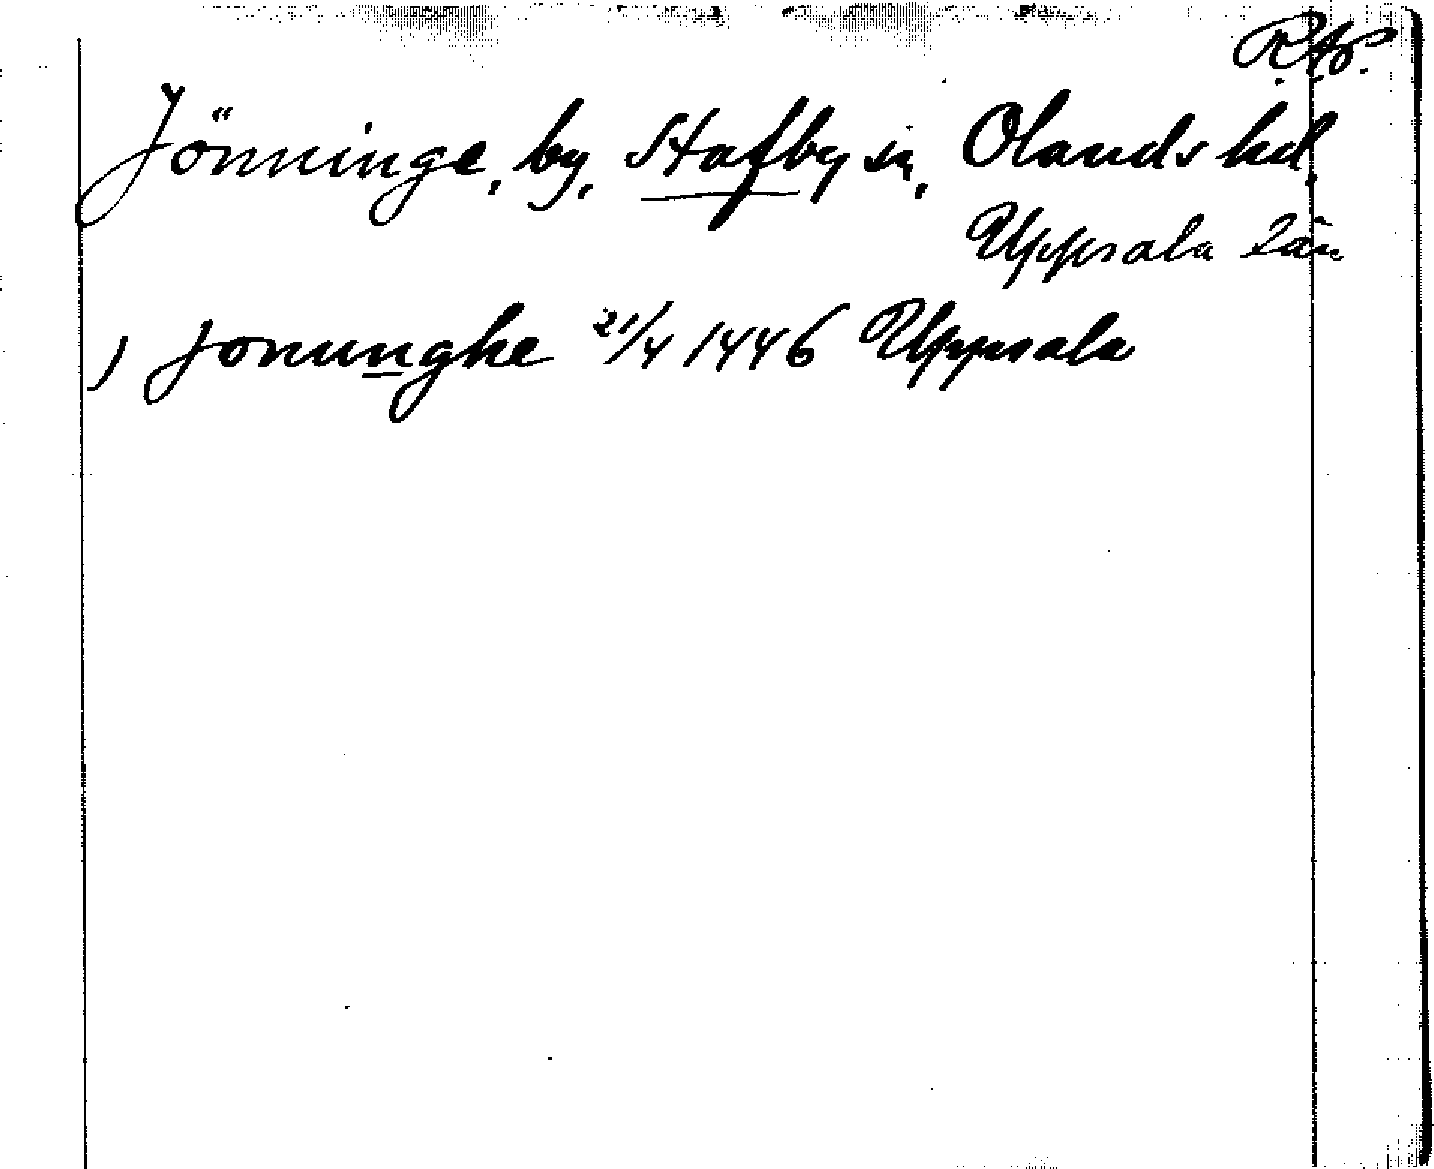 R.Ap.
Jönninge, by, Stafby sn, Olands hd,
Uppsala län
) Jonunghe 21/4 1446 Uppsala